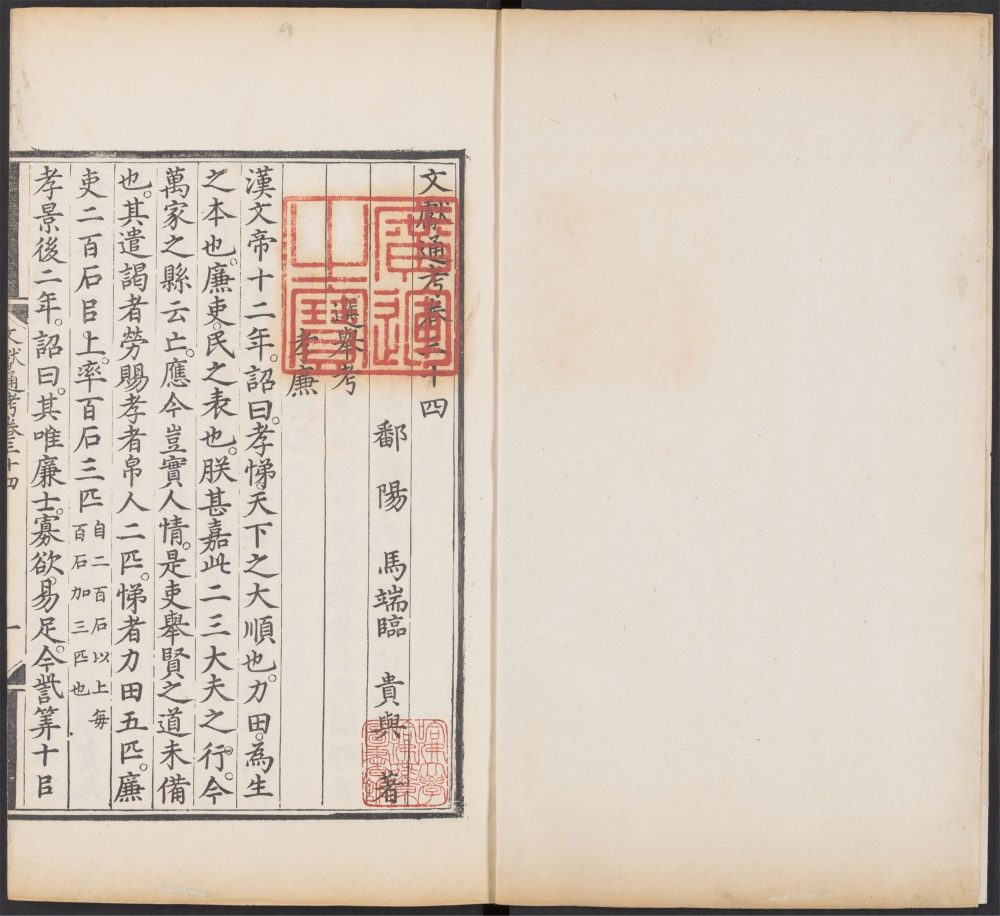 文獻通考卷三十四
鄱陽馬端臨貴與著
選舉考
孝廉
漢文帝十二年。詔曰。孝悌。天下之大順也。力田。為生
之本也。廉吏。民之表也。朕甚嘉此二三大夫之行。今
萬家之縣云亡。應令豈實人情。是吏舉賢之道未備
也。其遣謁者勞賜孝者帛人二匹。悌者力田五匹。廉
吏二百石㠯上。率百石三匹
自二百石以上每
百石加三匹也
孝景後二年。詔曰。其唯廉士。寡欲。易足。今訾筭十㠯
文獻通考卷三十四
一
乾
隆
之寶
哈佛